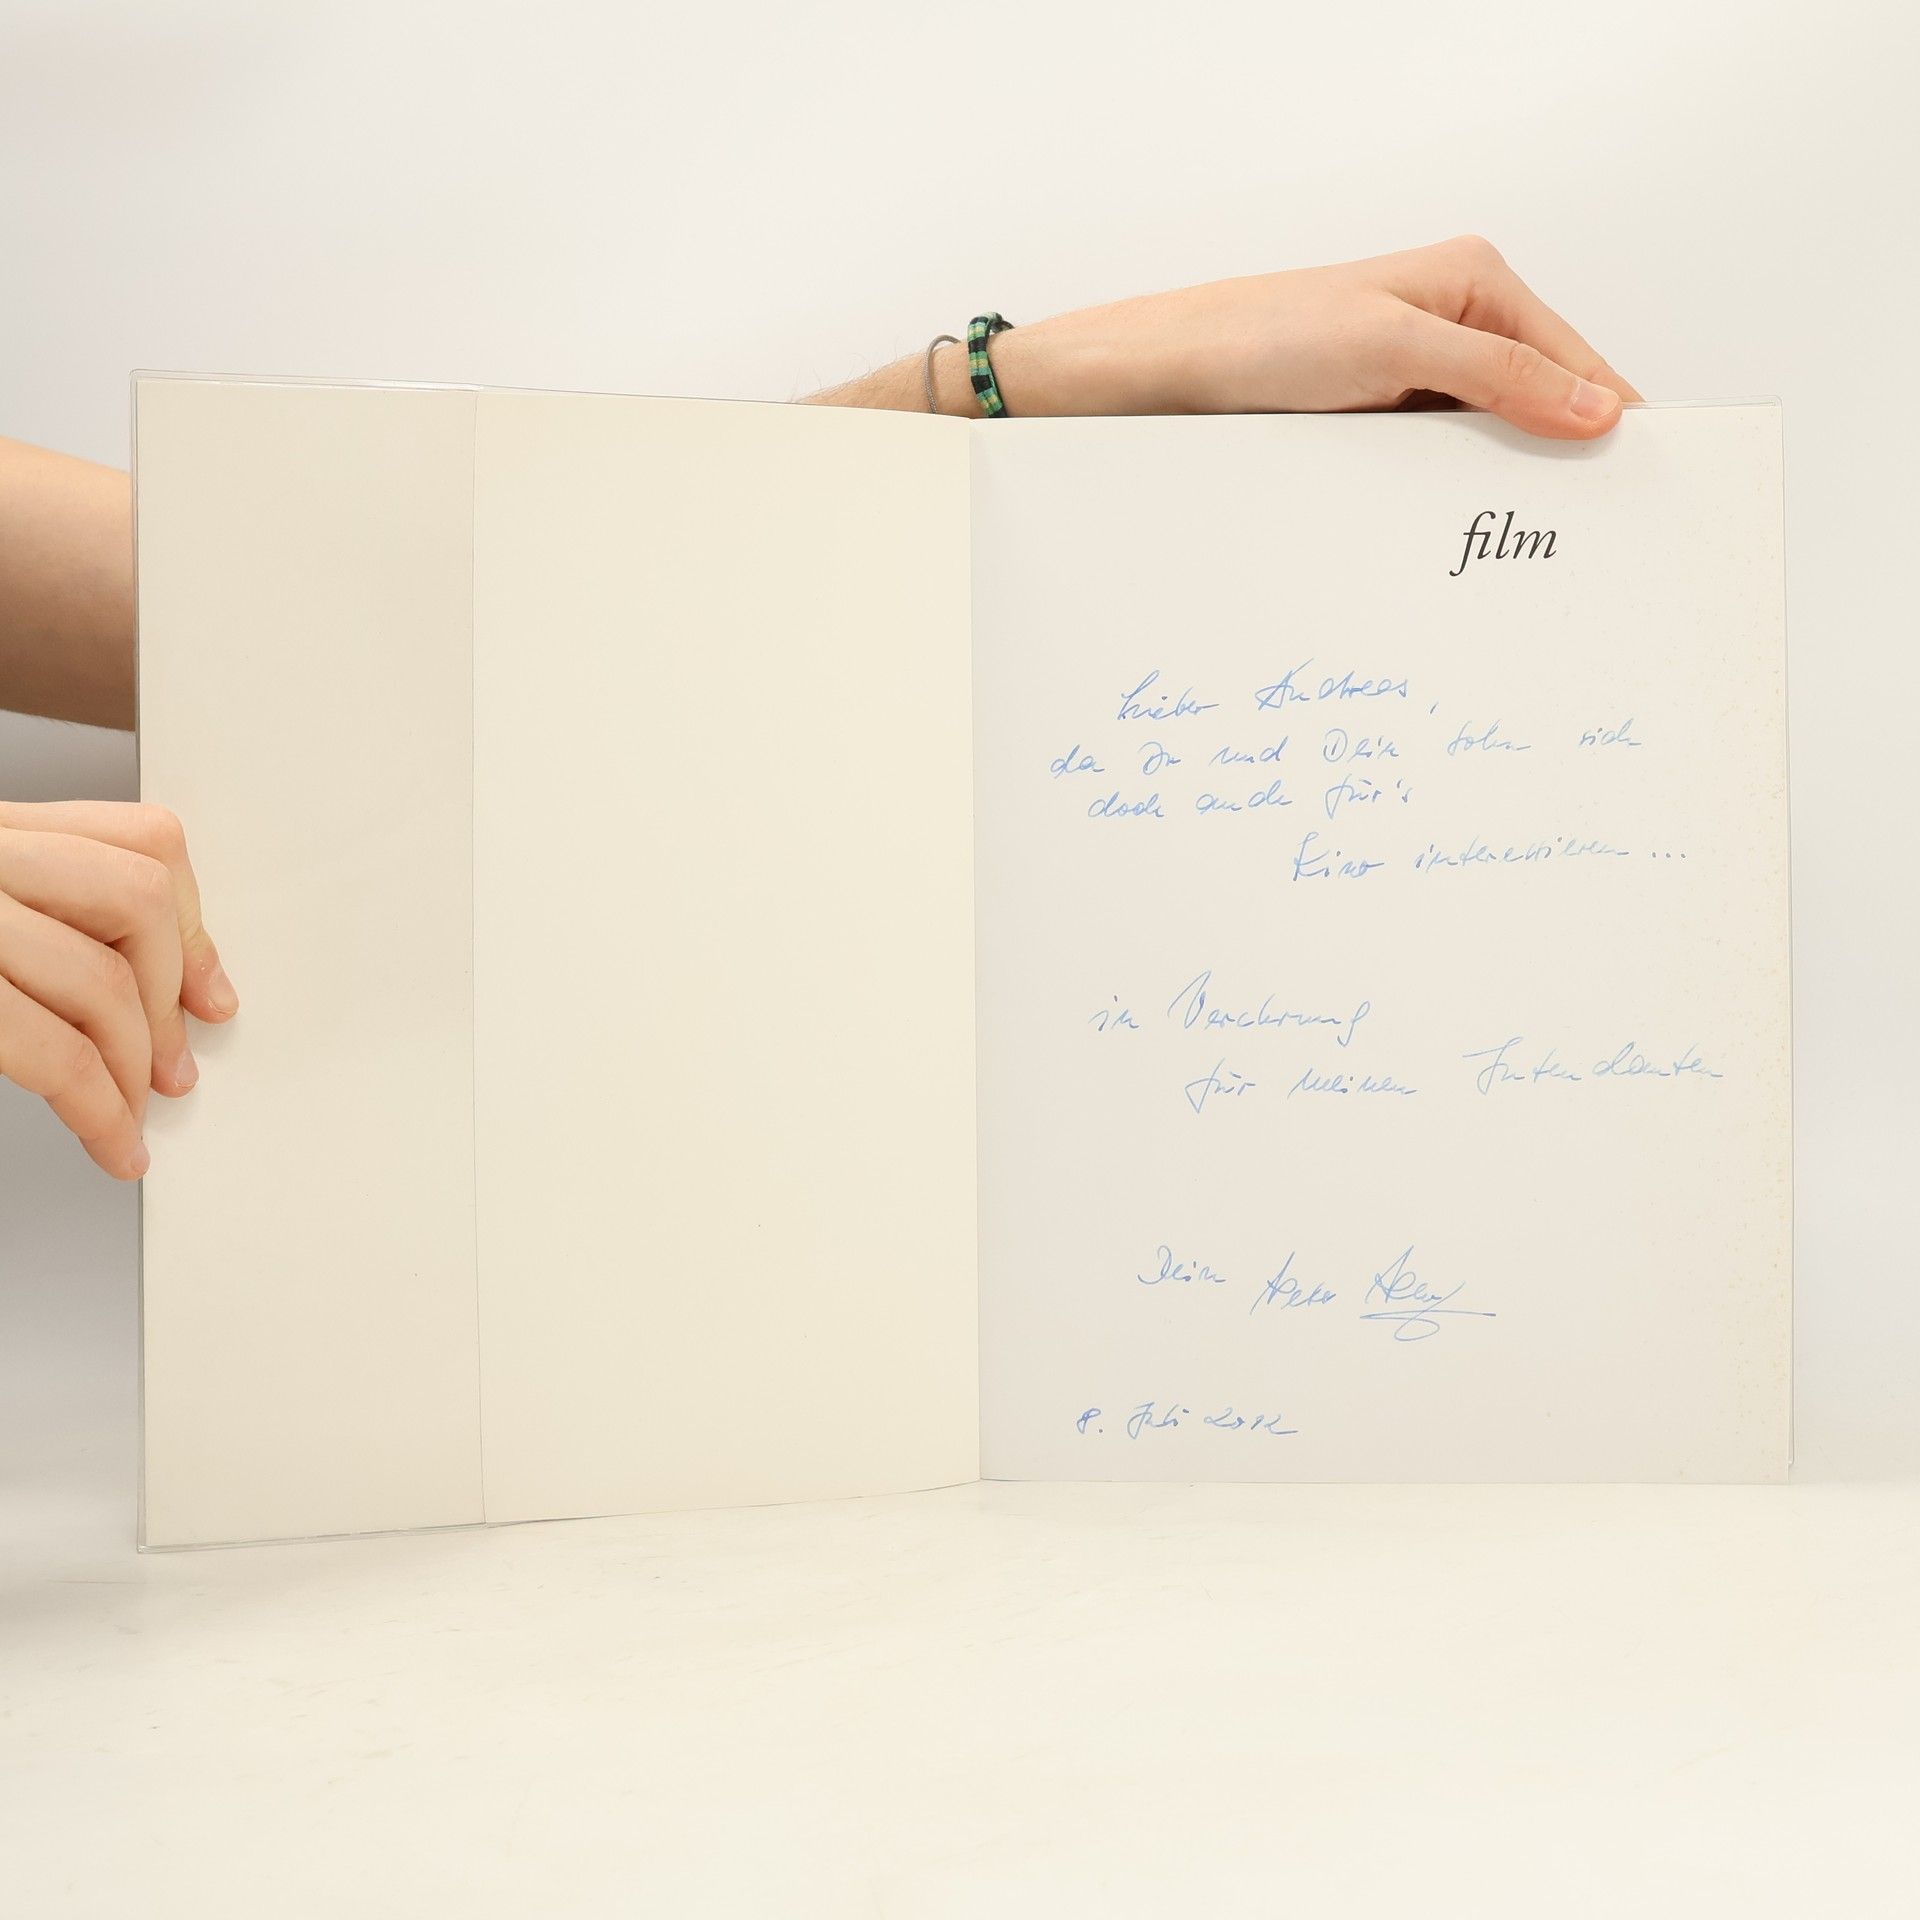 film
Lieber Andreas,
da Du und Dein Sohn sich
doch auch für's
Kino interessieren ...
in Verehrung
für meinen Intendanten
Dein Peter
8. Juli 2012